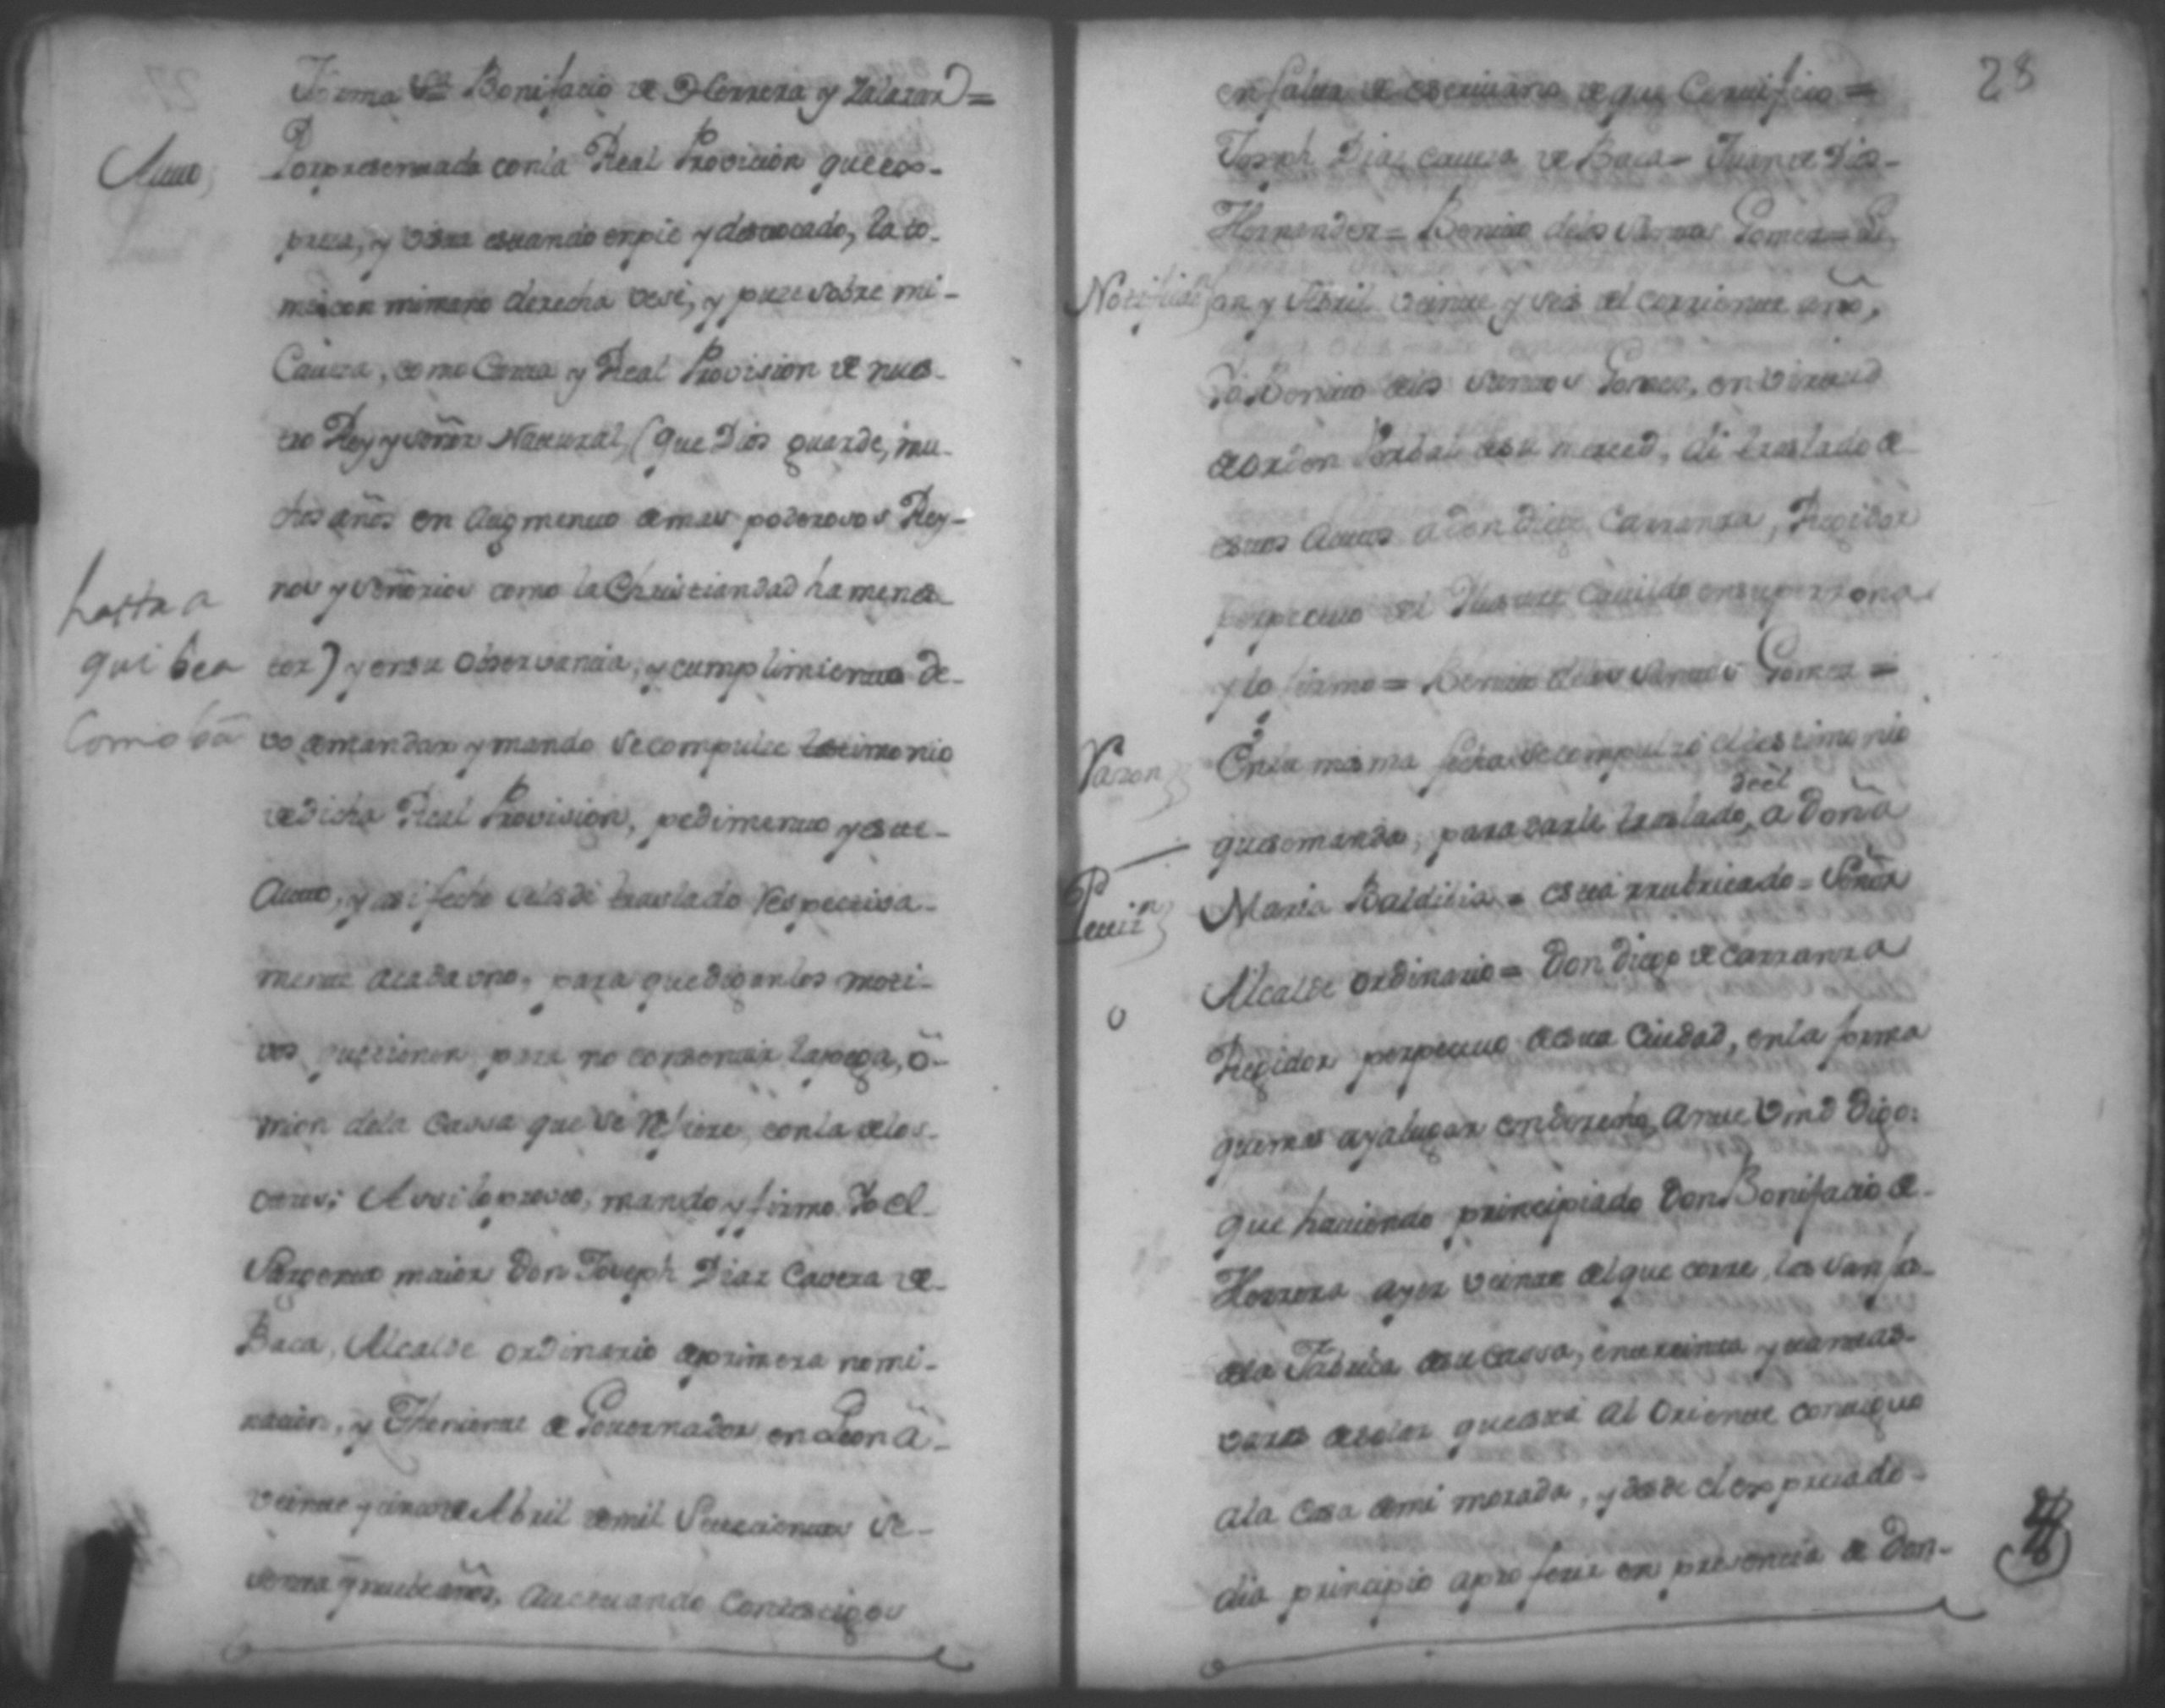 Firma Vt Bonifacio de Herrera y Zalazar =
Auto, Por presentada con la Real Provicion que ex-
presa, y vista estando en pie y destocado, la to-
me con mi mano derecha vesé, y puze sobre mi
Caveza, como Carta y Real Provision de nues-
tro Rey y Señor Natural, (que Dios guarde, mu-
chos años en augmento de mas poderosos Rey-
nos y Señorios como la Christiandad ha menes-
hasta a
qui bea
como bá
ter) y en su observancia, y cumplimiento de-
vo de mandar y mando se compulse testimonio
de dicha Real Provision, pedimento y este
Auto, y asi fecho se les dé traslado respectiva-
mente a cada uno, para que digan los moti-
vos que tienen para no consentir la pega, ó
union de la Cassa que se refiere, con la de los
otros; Assi lo proveo, mando y firmo Yo el
Sargento maior Don Joseph Diaz Caveza de
Baca, Alcalde ordinario de primera nomi-
nacion, y Theniente de Governador en Leon á
veinte y cinco de Abril de mil Setecientos Se-
senta y nueve años, actuando con testigos
28
en falta de escrivano de que Certifico =
Joseph Diaz caveza de Baca = Juan de Dios
Hernandez = Benito delos Santos Gomez = Le-
Notificon on y Abril veinte y seis del corriente año,
Yo Benito delos Santos Gomez, en virtud
de orden Verbal de su merced, di traslado de
estos Autos a don Diego Carranza, Regidor
perpetuo del Ilustre Cavildo en su persona
y lo firmo = Benito delos Santos Gomez =
Razon En la misma fecha se compulzó el testimonio
que se manda, para darle traslado, deel a Doña
Maria Baldivia = está rrubricado = Señor
Peticn
Alcalde ordinario = Don Diego de Carranza
Regidor perpetuo de esta Ciudad, en la forma
que mas aya lugar en derecho, ante Vmd Digo:
que haviendo principiado Don Bonifacio de
Herrera ayer veinte del que corre, las Sanjas
dela Fabrica de su cassa, en treinta y tantas
varas de solar que está al Oriente contiguo
ala Casa de mi morada, y desde el expresado
dia principio a proferir en presencia de Don